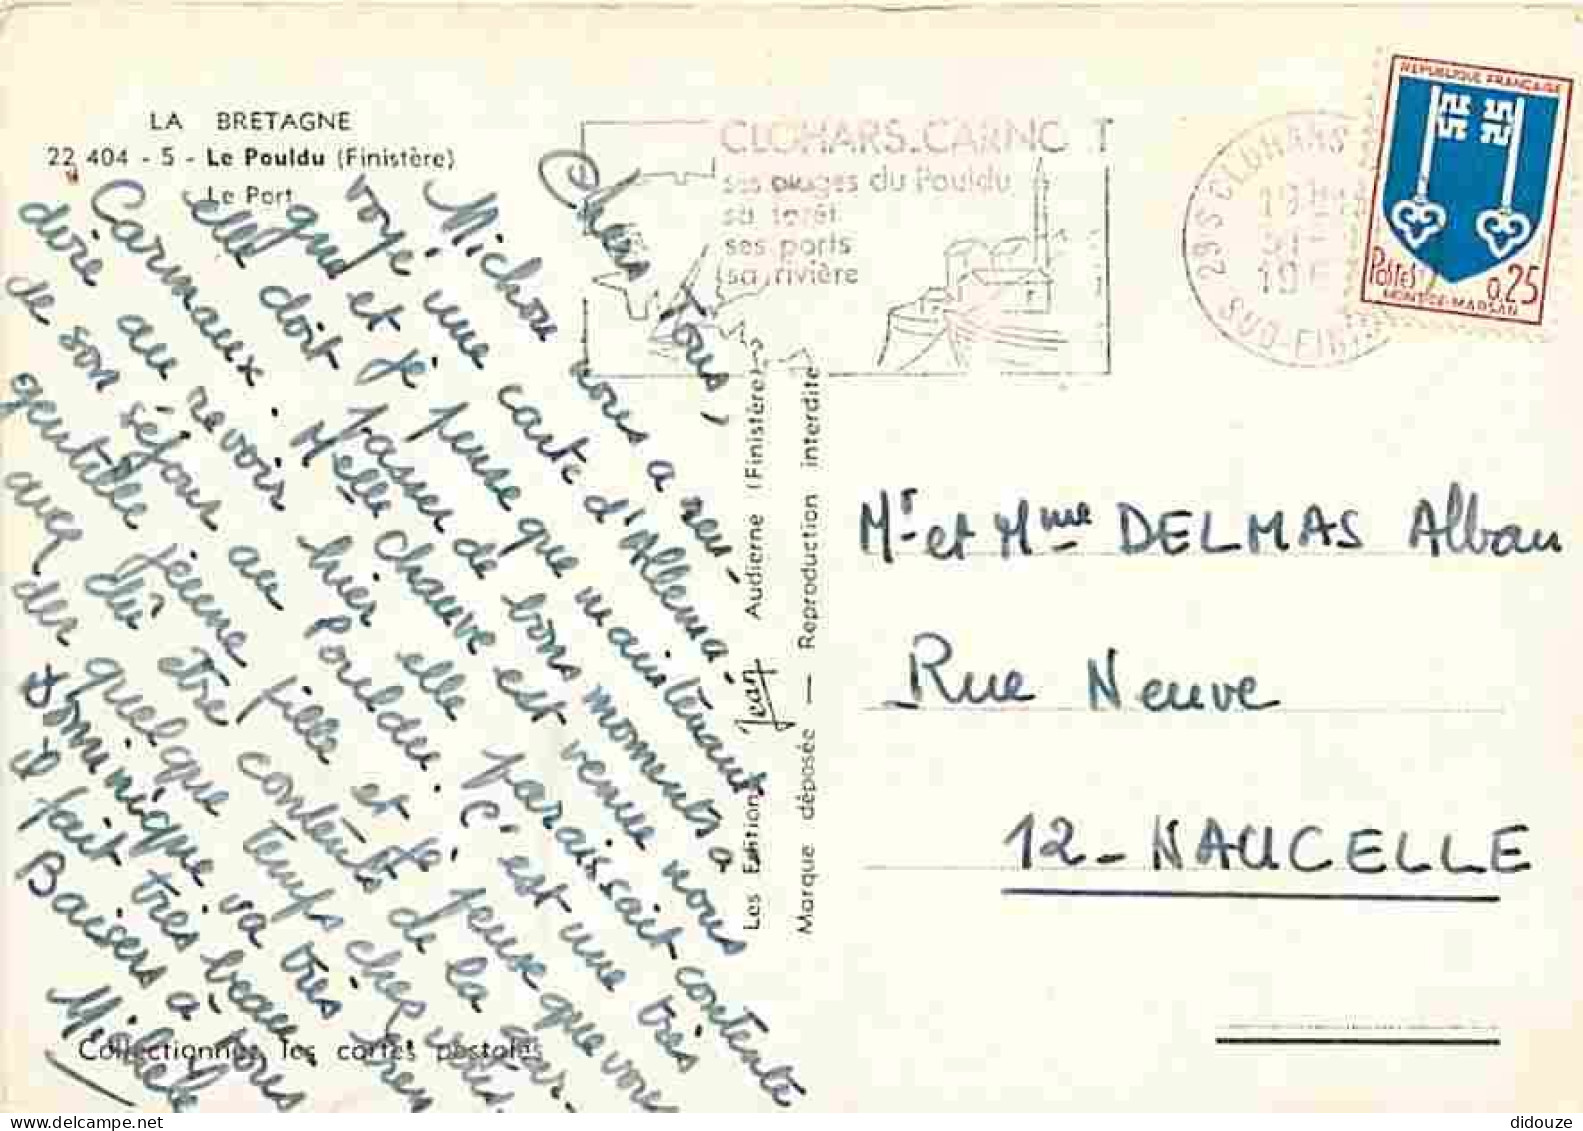 LA BRETAGNE
22 404 - 5 - Le Pouldu (Finistère)
Le Port
Chers Tous,
Michou nous a ren-
voyé une carte d'Allema-
gne et je pense que maintenant
elle doit passer de bons moments à
Carmaux. Melle Chauve est venue nous
dire au revoir hier elle paraissait contente
de son séjour au Pouldu. C'est une très
gentille jeune fille et je pense que vous
avez dû être contents de la gar-
der quelque temps chez vous.
Dominique va très bien
il fait très beau
Baisers à tous
Michele
Collectionnez les cartes postales
Les Editions Jean Audierne (Finistère)
Marque déposée — Reproduction interdite
CLOHARS-CARNOET
ses plages du Pouldu
sa forêt
ses ports
sa rivière
29S CLOHARS
SUD-FINI
REPUBLIQUE FRANÇAISE
POSTES 0,25
MONT-DE-MARSAN
Mr et Mme DELMAS Alban
Rue Neuve
12 - NAUCELLE
didouze